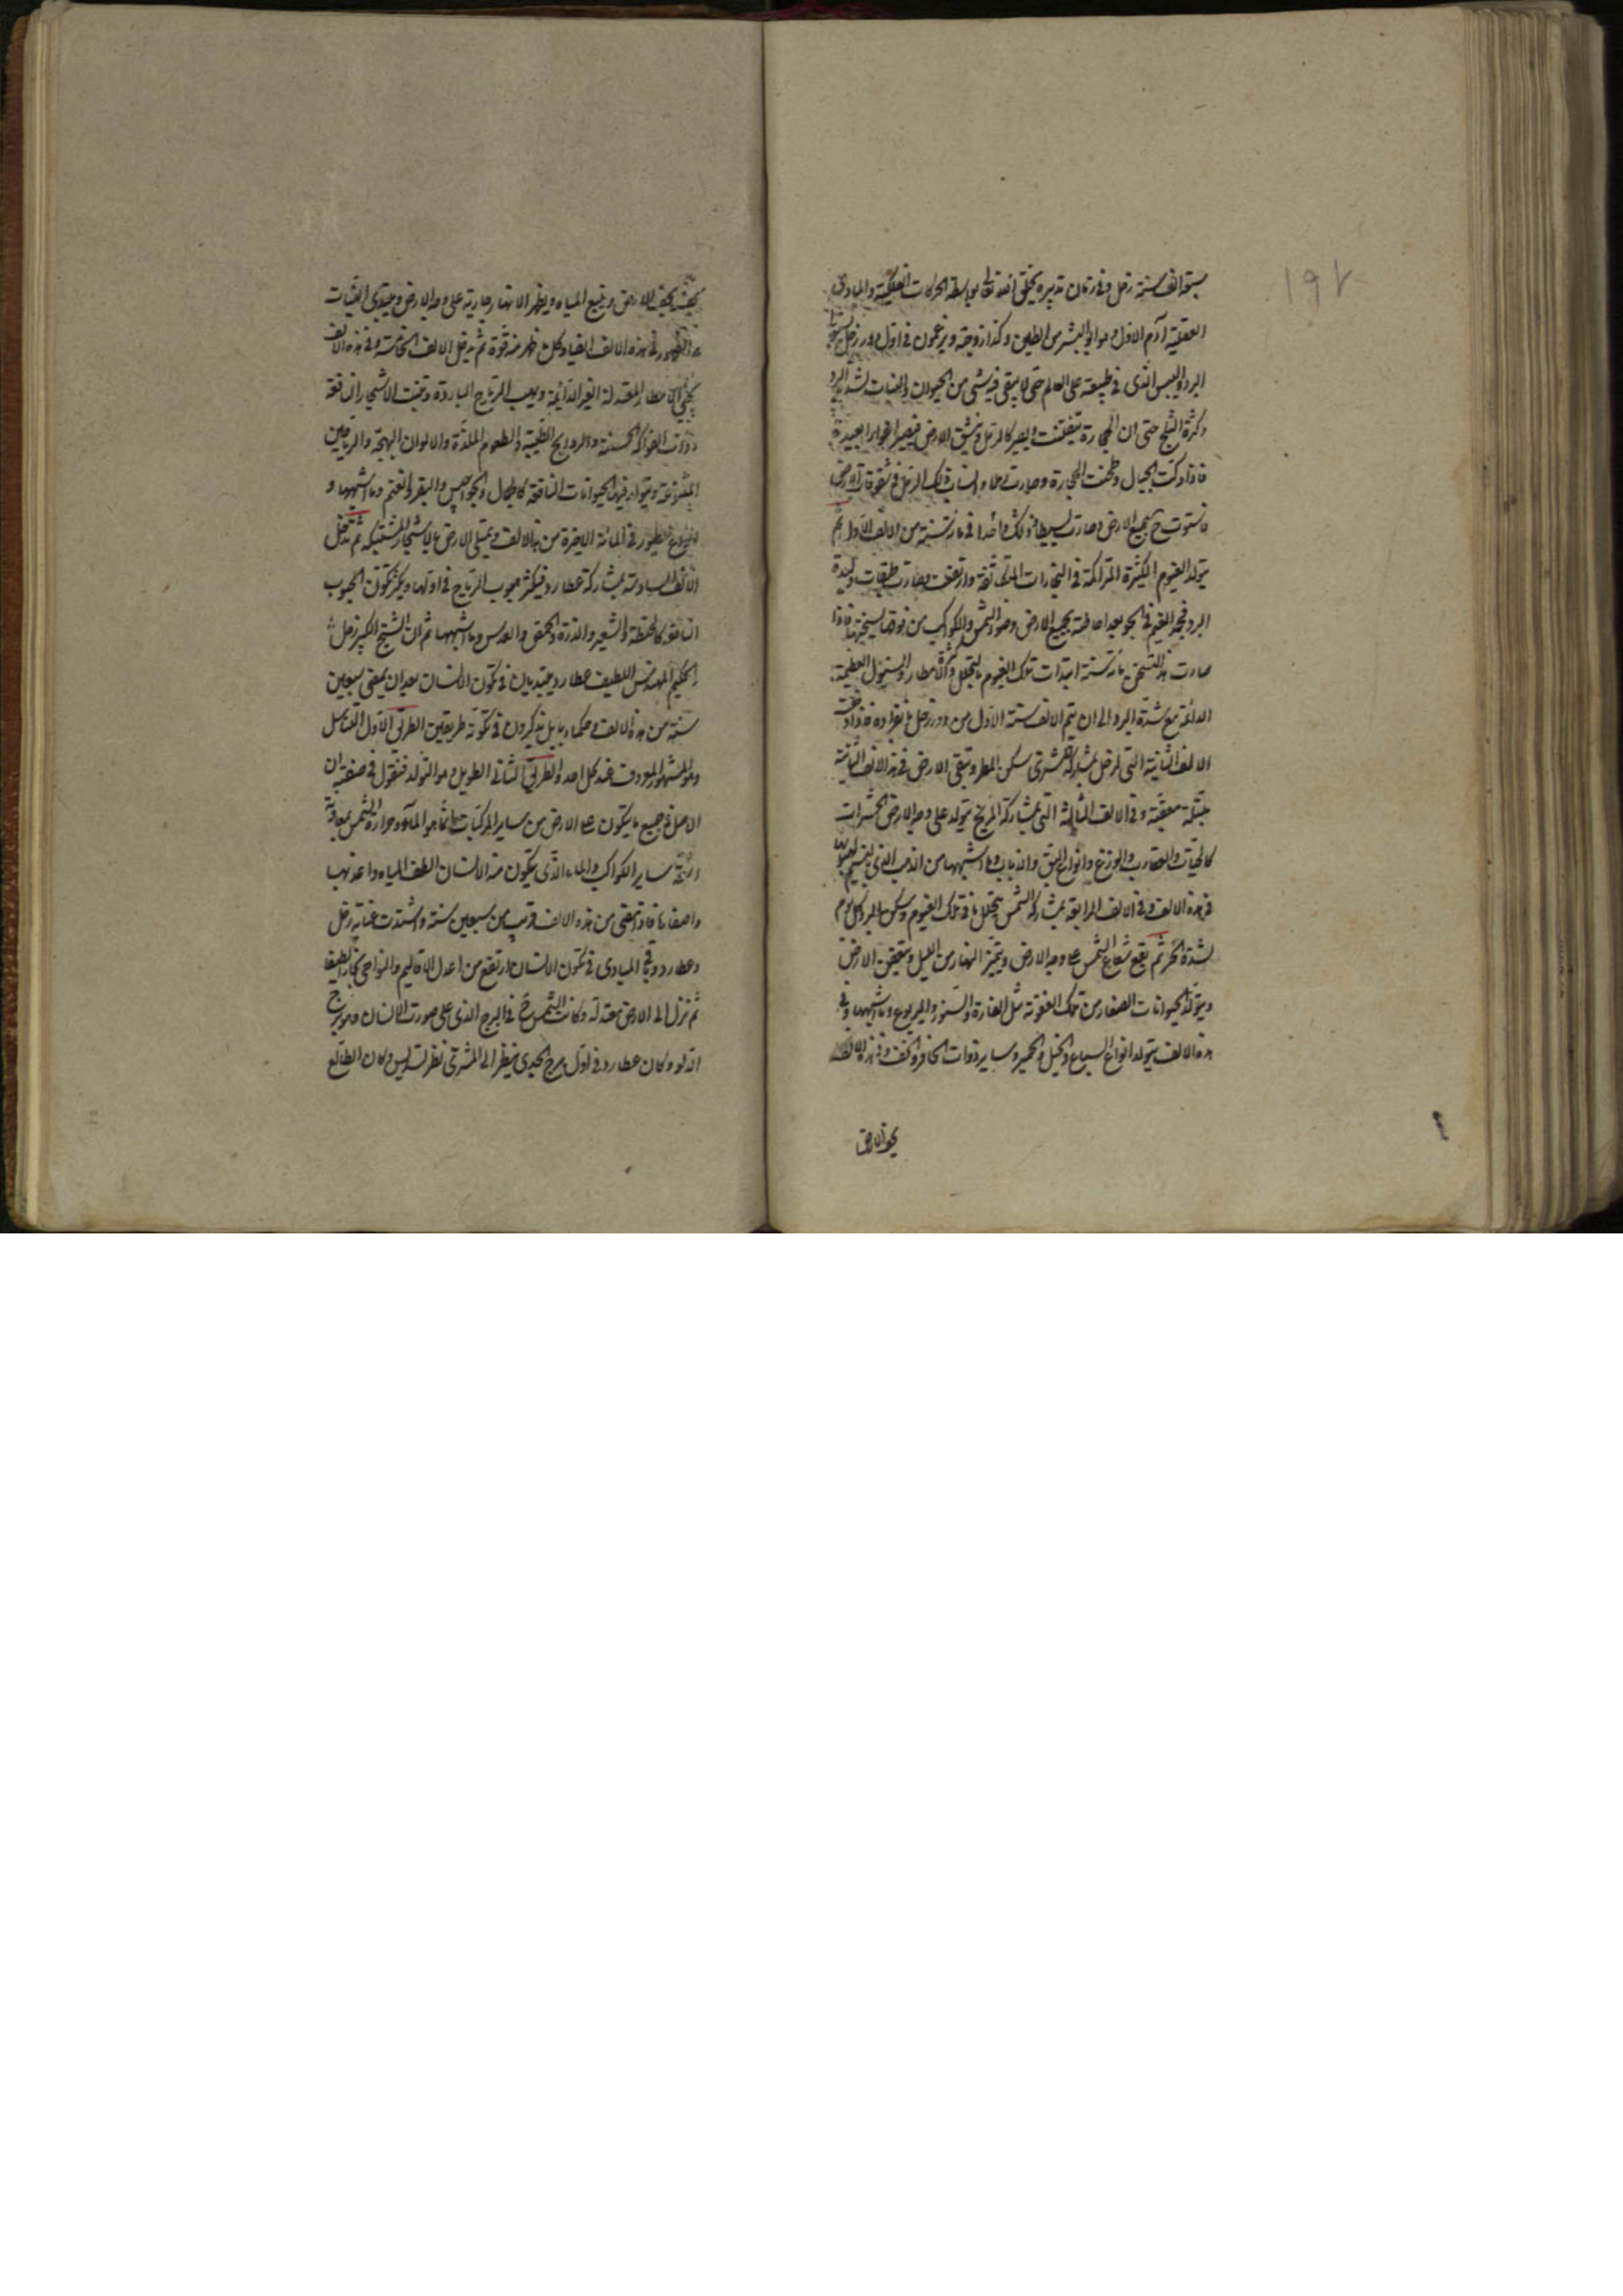 ١٩٢
سبعة الف سنة زحل وفى زمان تدبيره يخلق الله تعالى بواسطة الحركات الفلكية والمبادى
العقلية آدم الاول وهو ابو البشر من الطين وكذا زوجته ويزعمون فى اول دور زحل
البرد واليبس الذى فى طبيعته على العالم حتى لا يبقى فيه شئ من الحيوان والنبات لشدة البرد
وكثرة الثلج حتى ان الحجارة تتفتت ويصير كالرمل وينشق الارض فيصير اغوارا بعيدة
فاذا دكت الجبال وطحنت الحجارة وصارت رملا وانساب ذلك الرمل فى شقوقات الارض
فاستوت ح جميع الارض وصارت بسيطا وذلك واحدا فى مائة سنة من الالف الاول ثم
يتولد الغيوم الكثيرة المتراكمة فى البخارات المتكاثفة وارتفعت وصارت طبقات وشدة
البرد فيجمد الغيم فى الجو بعد احاطته بجميع الارض وضوء الشمس والكواكب من فوقها يسخنها فاذا
صارت هذا التسخن مائة سنة ابتدات تلك الغيوم بالتحلل وكثرة الامطار والسيول العظيمة
الدائمة مع شدة البرد الى ان يتم الالف سنة الاول من دور زحل بانفراده فاذا دخلت
الالف الثانية التى لزحل بمشاركة المشترى سكن المطر وتبقى الارض فى هذه الالف الثانية
مبتلة معفنة وفى الالف الثالثة التى بمشاركة المريخ يتولد على وجه الارض الحشرات
كالحيات والعقارب والوزغ وانواع البق والذباب وما اشبهها من
فى هذه الالف وفى الالف الرابعة بمشاركة الشمس يتحلل باقى تلك الغيوم وسكن البرد كل يوم
لشدة الحر ثم يقع شعاع الشمس على وجه الارض ويتميز النهار من الليل وتتعفن الارض
ويتولد الحيوانات الصغار من تلك العفونة مثل الفارة والسنور واليربوع وما اشبهها وفى
هذه الالف يتولد انواع السباع والخيل والحمير وساير ذوات الحافر والخف وفى هذه الالف
يجف الارض
يجف الارض وينبع المياه ويظهر الانهار جارية على وجه الارض ويبتدى النبات
الظهور فى هذه الالف ايضا وكلن ظهر منه قوة ثم يدخل الالف الخامسة وفى هذه الالف
يجئ الامطار المعتدلة الغير الدائمة ويهب الرياح الباردة وينبت الاشجار النافعة
ذوات الفواكه الحسنة والروايح الطيبة والطعوم الملذة والالوان البهجة والرياحين
المتنوعة ويتولد فيها الحيوانات النافعة كالجمال والجواميس والبقر والغنم وما اشبهها و
انواع الطيور فى المائة الاخيرة من هذه الالف ويمتلى الارض بالاشجار المشتبكة ثم تدخل
الالف السادسة بمشاركة عطارد فيكثر هبوب الرياح فى اولها ويكثر تكون الحبوب
النافعة كالحنطة والشعير والذرة والحمص والعدس وما اشبهها ثم ان الشيخ الكبير زحل
الحكيم المهندس اللطيف عطارد يبتديان فى تكون الانسان بعد ان يمضى سبعين
سنة من هذه الالف وحكماء بابل يذكرون فى تكونه طريقين الطريق الاول التناسل
وهو المشهور المعروف عند كل احد والطريق الثانى الطويل وهو التولد فنقول فى صفته ان
الاصل فى جميع ما يتكون على الارض من ساير المركبات انما هو الماء وحرارة الشمس بمعاونة
اشعة ساير الكواكب والماء الذى يتكون منه الانسان الطف المياه واعذبها
واصفاها فاذا مضى من هذه الالف قريب من سبعين سنة واشتدت عناية زحل
وعطارد وباقى المبادى فى تكون الانسان ارتفع من اعدل الاقاليم والنواحى بخارا لطيفا
ثم نزل الى الارض معتدلة وكانت الشمس ح فى البرج الذى على صورت الانسان وهو برج
الدلو وكان عطارد فى اول برج الجدى ينظر الى المشترى نظر تسديس وكان الطالع